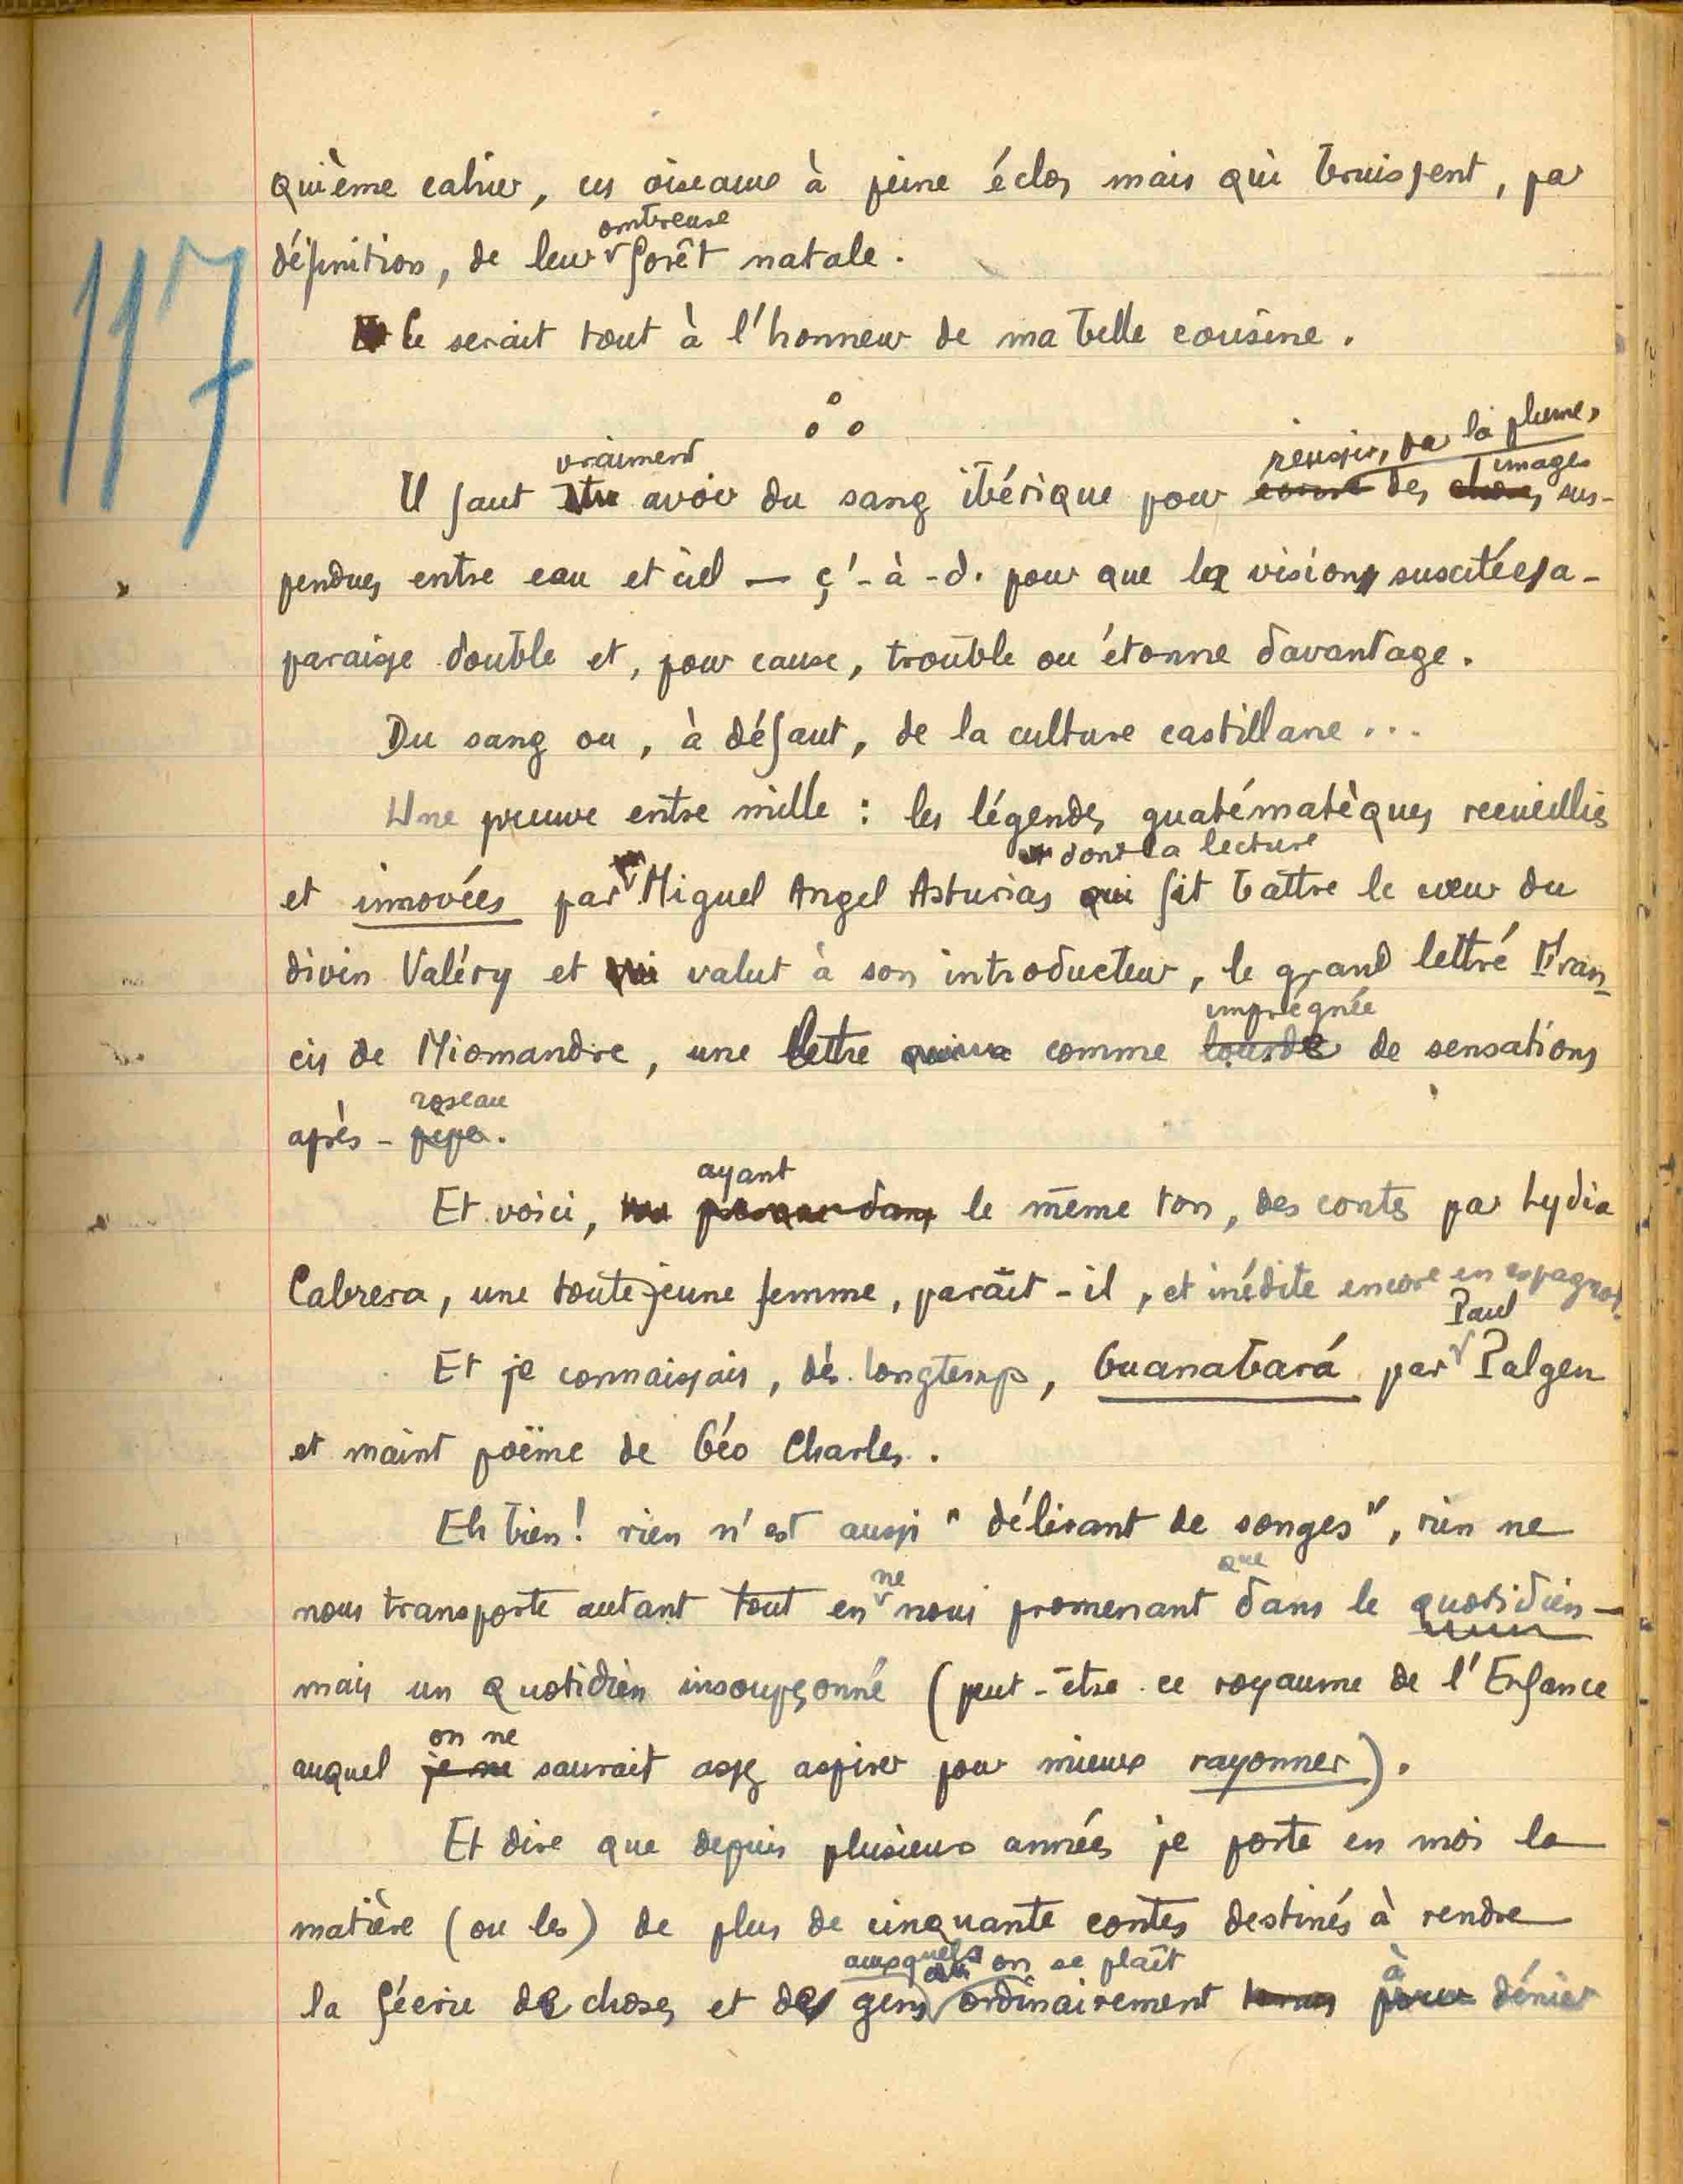 117
quième cahier, ces oiseaux à peine éclos mais qui bruissent, par
ombreuse
définition, de leur forêt natale.
Ce serait tout à l'honneur de ma belle cousine.
réussir, par la plume,
vraiment images
Il faut être avoir du sang ibérique pour des choses sus-
pendues entre eau et ciel — ç'-à-d. pour que la vision suscitée a-
paraisse double et, pour cause, trouble ou étonne davantage.
Du sang ou, à défaut, de la culture castillane...
Une preuve entre mille : les légendes guatématèques recueillies
dont la lecture
et innovées par Miguel Angel Asturias qui fit battre le cœur du
divin Valéry et qui valut à son introducteur, le grand lettré Fran-
imprégnée
cis de Miomandre, une lettre comme lourde de sensations
roseau
après-pipe.
ayant
Et voici, dans le même ton, des contes par Lydia
Cabrera, une toute jeune femme, paraît-il, et inédite encore en espagnol.
Paul
Et je connaissais, dès longtemps, Guanabará par Palgen
et maint poëme de Géo Charles.
Eh bien! rien n'est aussi "délirant de songes", rien ne
ne que
nous transporte autant tout en nous promenant dans le quotidien —
mais un quotidien insoupçonné (peut-être ce royaume de l'Enfance
on ne
auquel je ne saurait assez aspirer pour mieux rayonner).
Et dire que depuis plusieurs années je porte en moi la
matière (ou les) de plus de cinquante contes destinés à rendre
auxquels on se plaît à
la féerie de choses et de gens ordinairement tenus pour dénier